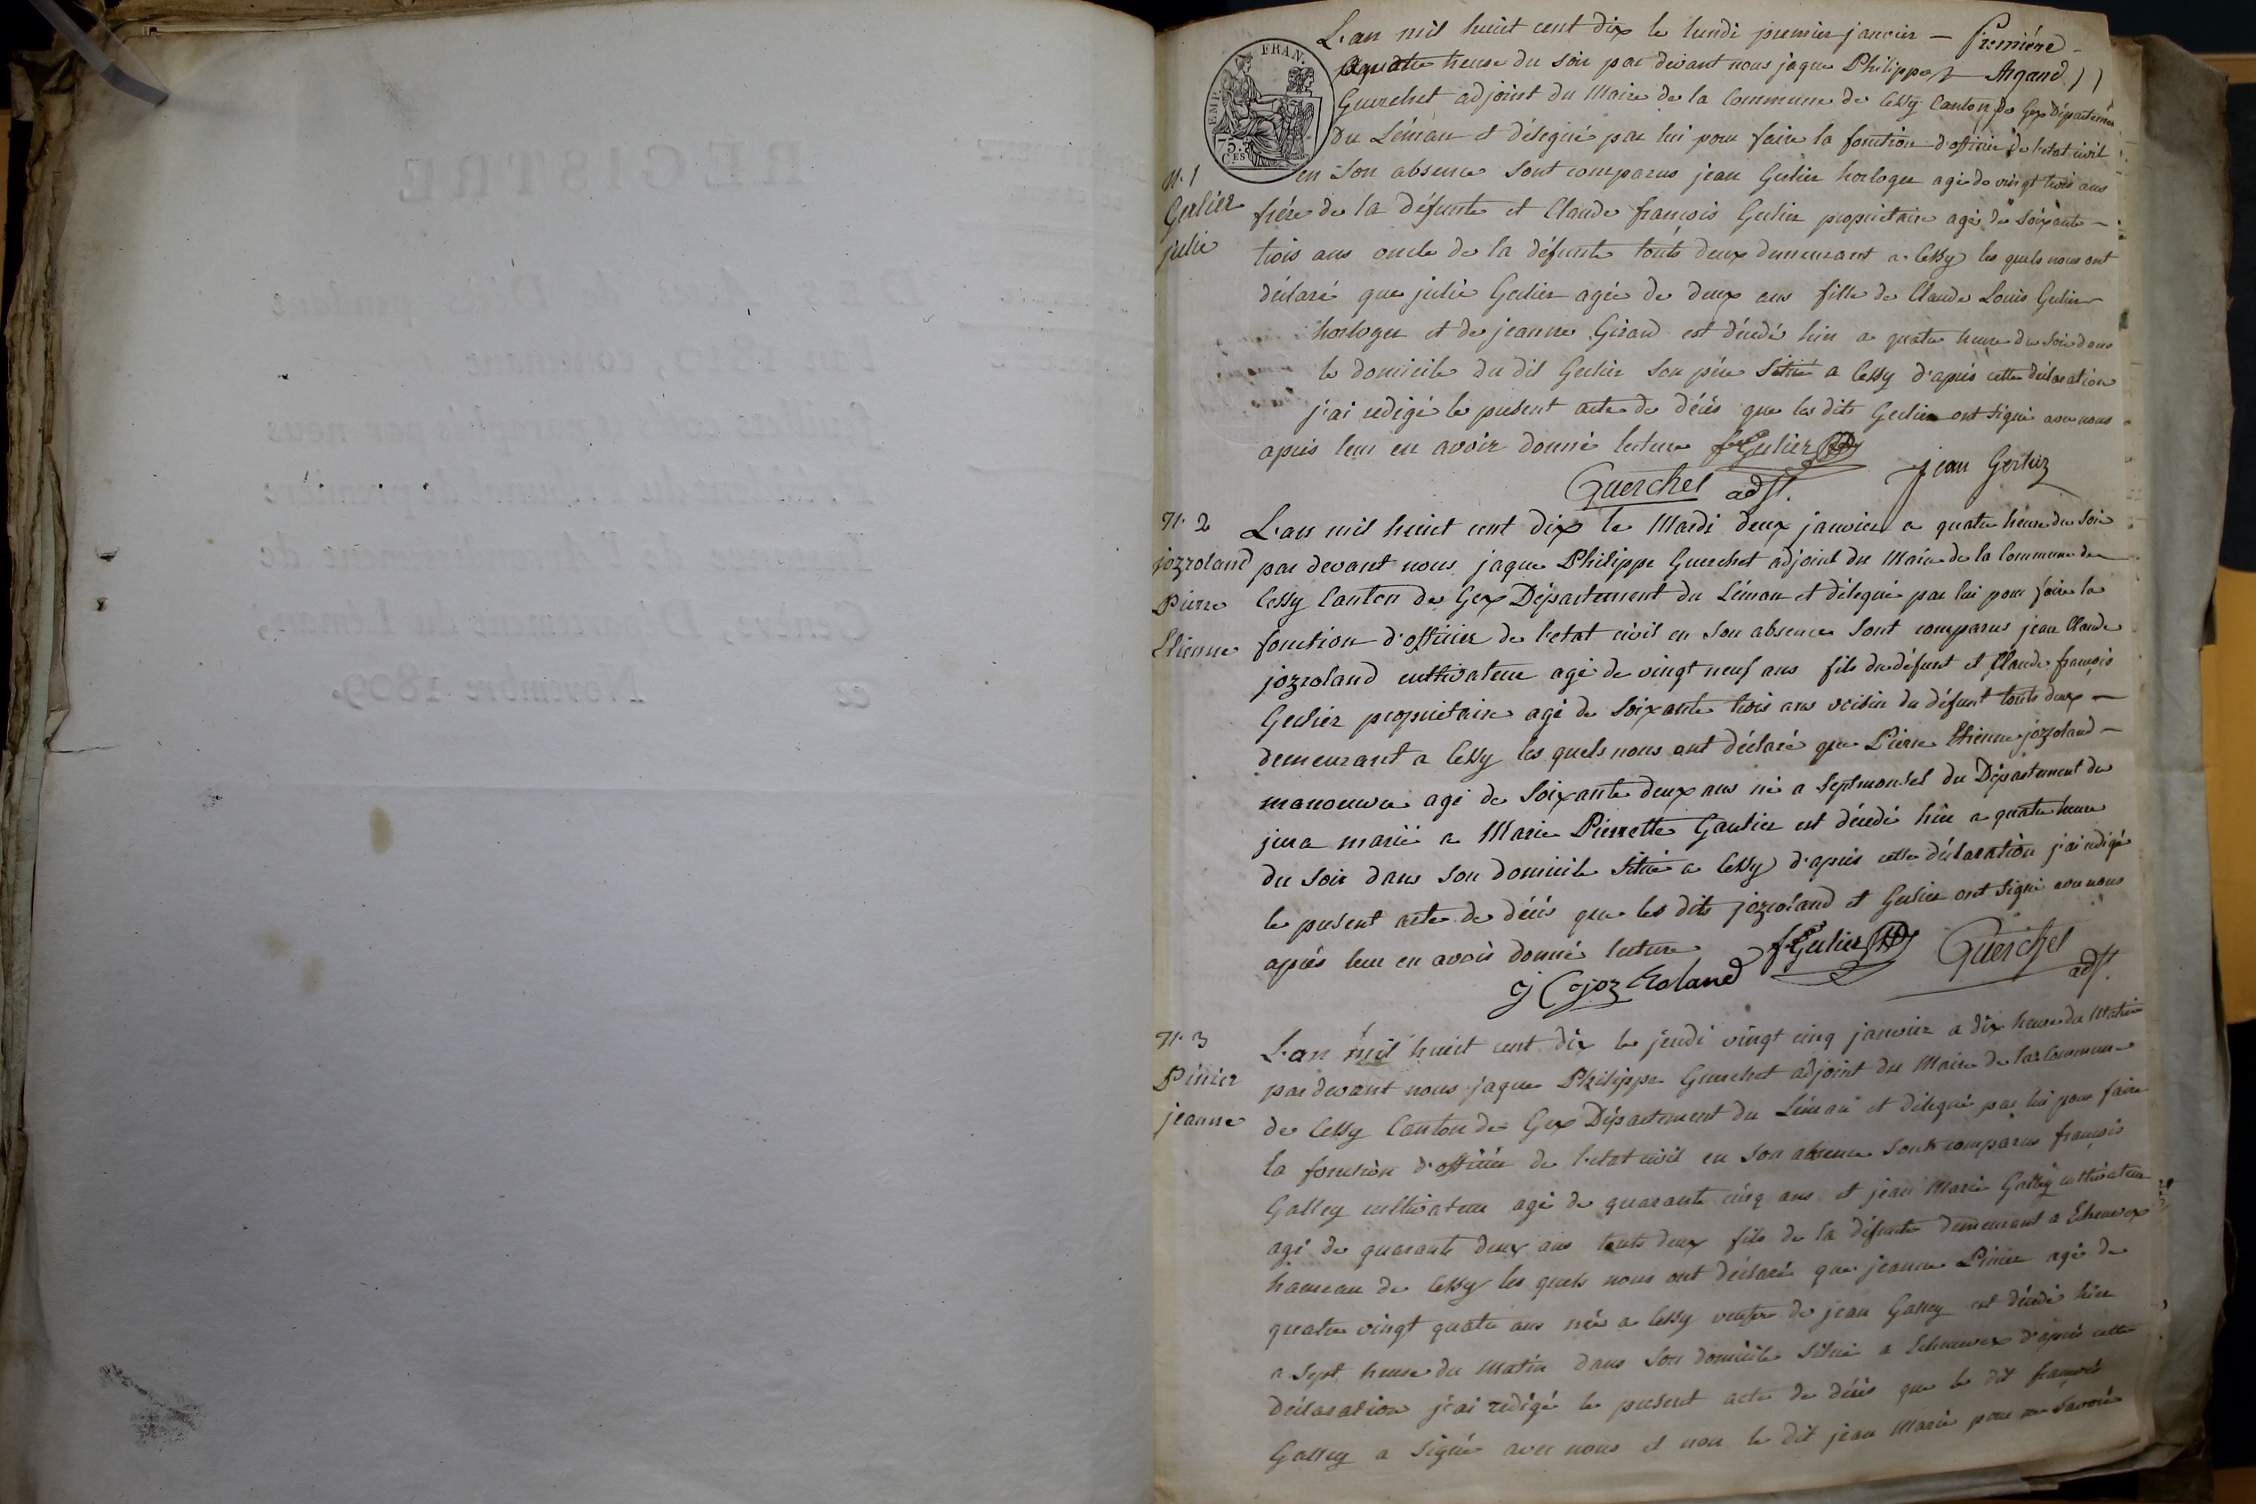 REGISTRE
Novembre 1809.
L'an mil huit cent dix le lundi premier janvier — Première
a quatre heure du soir par devant nous jaque Philippe Argand
EMP. FRAN.
75 Ces
Guerchet adjoint du Maire de la Commune de Cessy Canton de Gex Département
du Léman et délegué par lui pour faire la fonction d'officier de l'etat civil
en son absence sont comparus jean Gerlier horloger agé de vingt trois ans
N. 1
Gerlier
julie
frére de la défunte et Claude françois Gerlier propriétaire agé de soixante —
trois ans oncle de la défunte touts deux demeurant a Cessy les quels nous ont
déclaré que julie Gerlier agée de deux ans fille de Claude Louis Gerlier
horloger et de jeanne Girard est décédé hier a quatre heure du soir dans
le domicile du dit Gerlier son pére situé a Cessy d'aprés cette déclaration
j'ai redigé le present acte de décés que les dits Gerlier ont signé avec nous
aprés leur en avoir donné lecture f Gerlier
jean Gerlier
Guerchet adjt.
N. 2
jozroland
Pierre
Etienne
L'an mil huit cent dix le Mardi deux janvier a quatre heure du soir
par devant nous jaque Philippe Guerchet adjoint du Maire de la Commune de
Cessy Canton de Gex Département du Léman et délegué par lui pour faire la
fonction d'officier de l'etat civil en son absence sont comparus jean Claude
jozroland cultivateur agé de vingt neuf ans fils du défunt et Claude françois
Gerlier propriétaire agé de soixante trois ans voisin du défunt touts deux —
demeurant a Cessy les quels nous ont déclaré que Pierre Etienne jozroland —
manoeuvre agé de soixante deux ans né a Septmonsel du Département du
jura marié a Marie Pierrette Gautier est décédé hier a quatre heure
du soir dans son domicile situé a Cessy d'aprés cette déclaration j'ai redigé
le present acte de décés que les dits jozroland et Gerlier ont signé avec nous
aprés leur en avoir donné lecture f Gerlier Guerchet
adjt.
j C joz Roland
N. 3
Pinier
jeanne
L'an mil huit cent dix le jeudi vingt cinq janvier a dix heure du Matin
par devant nous jaque Philippe Guerchet adjoint du Maire de la Commune
de Cessy Canton de Gex Département du Léman et délegué par lui pour faire
la fonction d'officier de l'etat civil en son absence sont comparus françois
Gassey cultivateur agé de quarante cinq ans et jean Marie Gassey cultivateur
agé de quarante deux ans touts deux fils de la défunte demeurant a Echenevex
hameau de Cessy les quels nous ont déclaré que jeanne Pinier agé de
quatre vingt quatre ans née a Cessy veufve de jean Gassey est décédé hier
a sept heure du Matin dans son domicile situé a Echenevex d'aprés cette
déclaration j'ai redigé le present acte de décés que le dit françois
Gassey a signé avec nous et non le dit jean Marie pour ne savoir